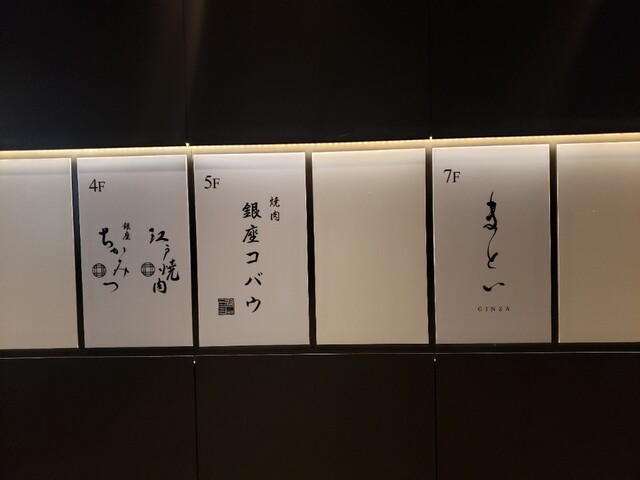 4F
江戸焼肉
銀座
ちかみつ
5F
焼肉
銀座コバウ
7F
まとい
GINZA